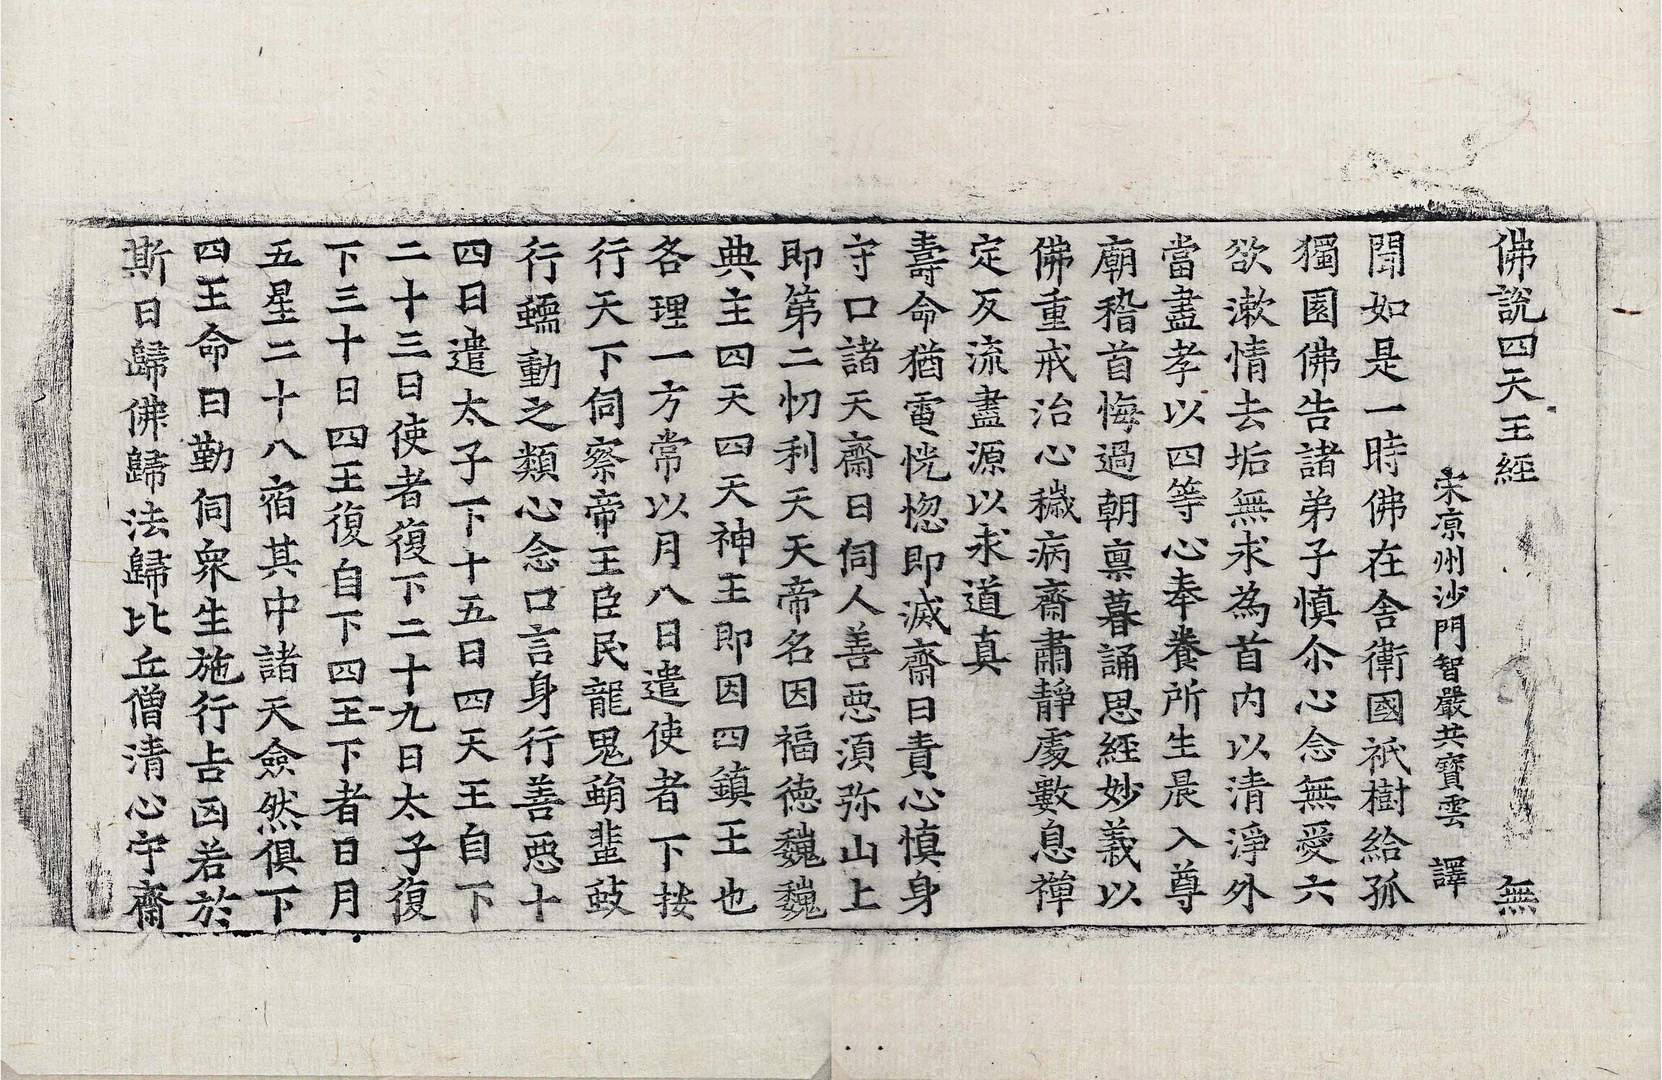 佛說四天王經 無
宋涼州沙門智嚴共寶雲 譯
聞如是一時佛在舍衛國祇樹給孤
獨園佛告諸弟子慎尒心念無愛六
欲漱情去垢無求為首内以清淨外
當盡孝以四等心奉養所生晨入尊
廟稽首悔過朝禀暮誦思經妙義以
佛重戒治心穢病齋肅靜處數息禪
定反流盡源以求道真
壽命猶電恍惚即滅齋日責心慎身
守口諸天齋日伺人善惡須弥山上
即第二忉利天天帝名因福德巍巍
典主四天四天神王即因四鎮王也
各理一方常以月八日遣使者下按
行天下伺察帝王臣民龍鬼蜎蜚蚑
行蠕動之類心念口言身行善惡十
四日遣太子下十五日四天王自下
二十三日使者復下二十九日太子復
下三十日四王復自下四王下者日月
五星二十八宿其中諸天僉然俱下
四王命曰勤伺衆生施行吉凶若於
斯日歸佛歸法歸比丘僧清心守齋